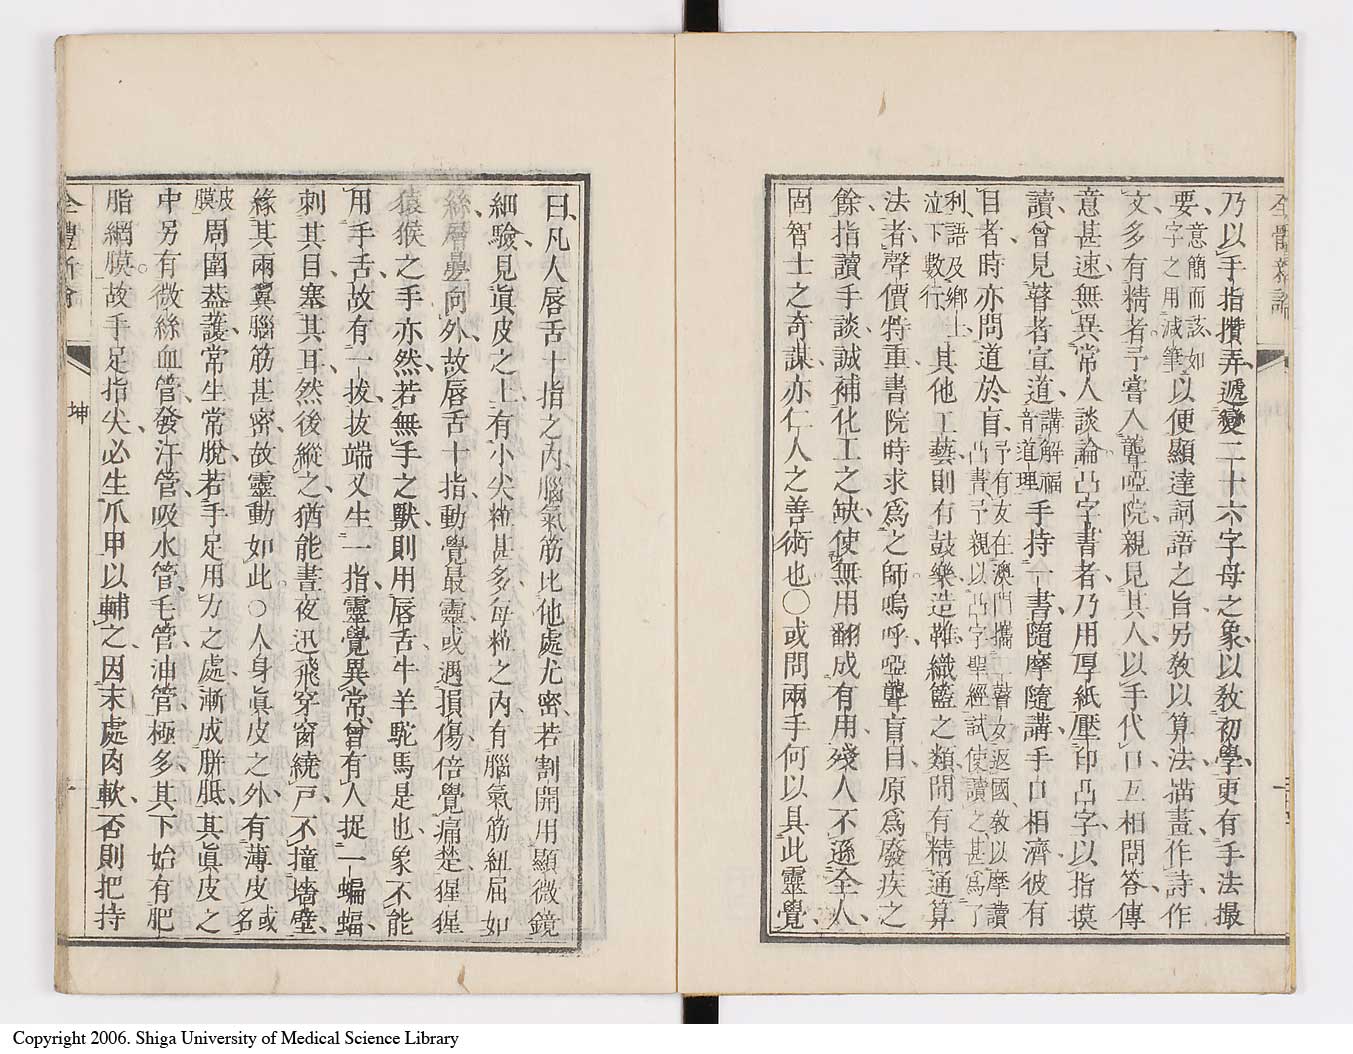 全體新論
乃以手指攢弄遞變二十六字母之象以敎初學更有手法撮
要意簡而該如字之用減筆以便顯達詞語之旨另敎以算法描畫作詩作
文多有精者予嘗入聾啞院親見其人以手代口互相問答傳
意甚速無異常人談論凸字書者乃用厚紙壓印凸字以指摸
讀曾見瞽者宣道講解福音道理手持一書隨摩隨講手口相濟彼有
目者時亦問道於盲予有友在澳門攜一瞽女返國敎以摩讀凸書予親以凸字聖經試使讀之甚爲了
利語及鄉土泣下數行其他工藝則有鼓樂造鞋織籃之類間有精通算
法者聲價特重書院時求爲之師嗚呼啞聾盲目原爲廢疾之
餘指讀手談誠補化工之缺使無用翻成有用殘人不遜全人
固智士之奇謀亦仁人之善術也〇或問兩手何以具此靈覺
曰凡人唇舌十指之內腦氣筋比他處尤密若割開用顯微鏡
細驗見眞皮之上有小尖粒甚多每粒之內有腦氣筋紐屈如
絲層疊向外故唇舌十指動覺最靈或遇損傷倍覺痛楚猩猩
猿猴之手亦然若無手之獸則用唇舌牛羊駝馬是也象不能
用手舌故有一拔拔端又生一指靈覺異常曾有人捉一蝙蝠
刺其目塞其耳然後縱之猶能晝夜迅飛穿窗繞戶不撞墻壁
緣其兩翼腦筋甚密故靈動如此〇人身眞皮之外有薄皮或名
皮膜周圍葢護常生常脫若手足用力之處漸成胼胝其眞皮之
中另有微絲血管發汗管吸水管毛管油管極多其下始有肥
脂網膜故手足指尖必生爪甲以輔之因末處肉軟否則把持
全體新論
坤
Copyright 2006. Shiga University of Medical Science Library